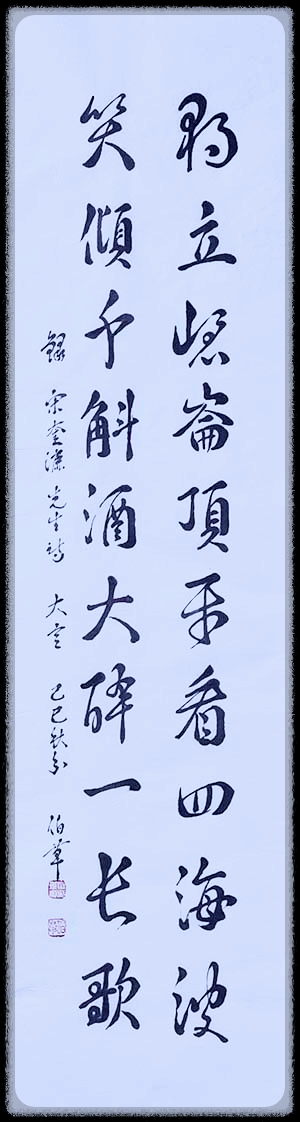 獨立崑崙頂平看四海波
笑傾千斛酒大醉一長歌
錄宋奎濂先生詩 大言 己巳秋分 伯